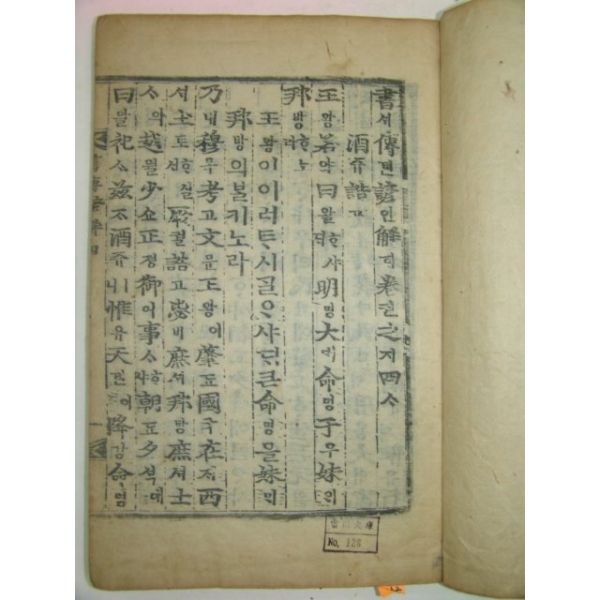 書셔傳뎐諺언解ᄒᆡ卷권之지四ᄉᆞ
酒쥬誥고
王왕若약曰왈ᄒᆞ샤ᄃᆡ明명大대命명于우妹ᄆᆡ
邦방ᄒᆞ노라
王왕이이러ᄐᆞ시ᄀᆞᆯᄋᆞ샤ᄃᆡ큰命명을妹ᄆᆡ
邦방의ᄇᆞᆯ키노라
乃내穆목考고文문王왕이肇됴國국在ᄌᆡ西
셔土토ᄒᆞ실ᄉᆡ厥궐誥고毖비庶셔邦방庶셔士
ᄉᆞ와越월少쇼正졍御어事ᄉᆞᄒᆞ샤朝됴夕셕애
曰왈祀ᄉᆞ玆ᄌᆞ酒쥬ㅣ니惟유天텬이降강命명
No. 126
12